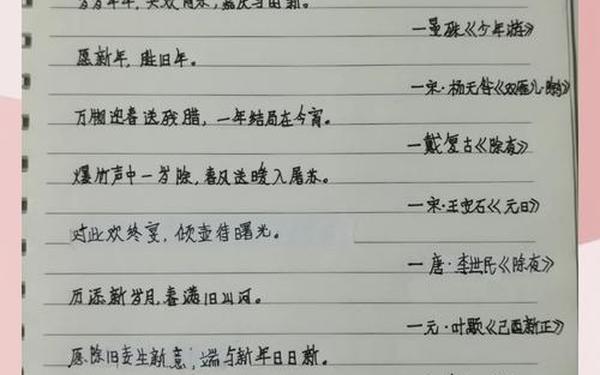 岁岁年年，共欢同乐，嘉庆与时新。
—晏殊《少年游》
愿新年，胜旧年。
—宋·杨无咎《双雁儿·除夕》
万物迎春送残腊，一年结局在今宵。
—戴复古《除夜》
爆竹声中一岁除，春风送暖入屠苏。
—宋·王安石《元日》
对此欢终宴，倾壶待曙光。
—唐·李世民《除夜》
历添新岁月，春满旧山河。
—元·叶颙《己酉新正》
愿除旧妄生新意，端与新年日日新。